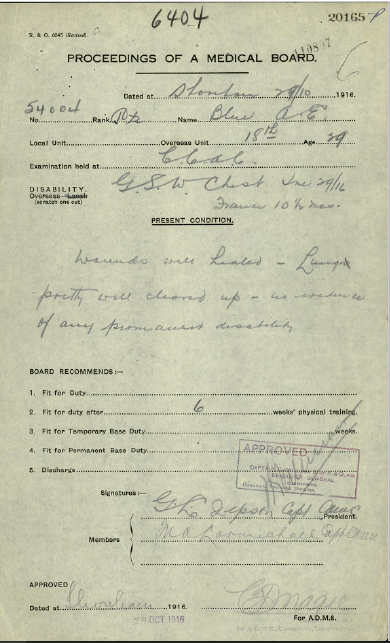 6404
20165-P
R. & O. 6045
110817
PROCEEDINGS OF A MEDICAL BOARD.
Dated at Shoreham 29/10 1916.
No. 54004 Rank Pte Name Blue A. E.
Local Unit Overseas Unit 18th Age 29
Examination held at C.C.A.C.
DISABILITY. G.S.W Chest June 29/16
Overseas-Local
(scratch one out) France 10½ mos.
PRESENT CONDITION.
Wounds well healed - Lungs
pretty well cleared up - no evidence
of any permanent disability
BOARD RECOMMENDS:—
1. Fit for Duty
2. Fit for duty after 6 weeks' physical training.
3. Fit for Temporary Base Duty weeks.
4. Fit for Permanent Base Duty
5. Discharge
APPROVED
Signatures:—
G L Jepson Capt CAMC
President.
Members
APPROVED
Dated at Shoreham 1916.
29 OCT 1916
For A.D.M.S.